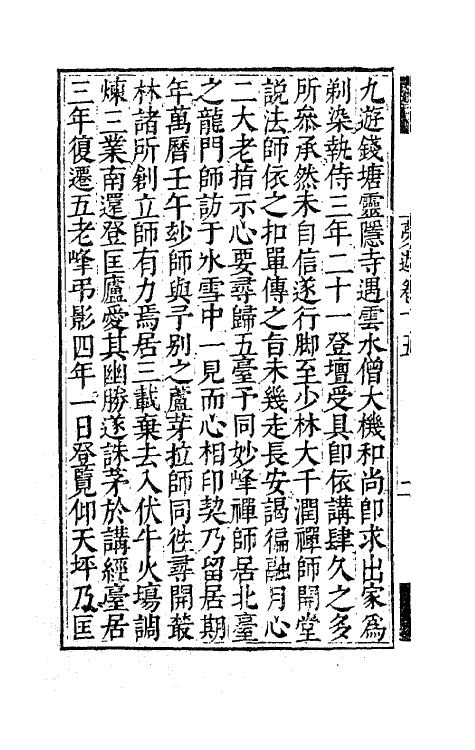 九遊錢塘靈隱寺遇雲水僧大機和尚卽求出家爲
剃染執侍三年二十一登壇受具卽依講肆久之多
所叅承然未自信遂行脚至少林大千潤禪師開堂
說法師依之扣單傳之旨未幾走長安謁徧融月心
二大老指示心要尋歸五臺予同妙峰禪師居北臺
之龍門師訪于氷雪中一見而心相印契乃留居期
年萬曆壬午玅師與予别之蘆芽拉師同徃尋開叢
林諸所創立師有力焉居三載棄去入伏牛火塲調
煉三業南還登匡廬愛其幽勝遂誅茅於講經臺居
三年復遷五老峰弔影四年一日登覽仰天坪乃匡
夢遊卷十五